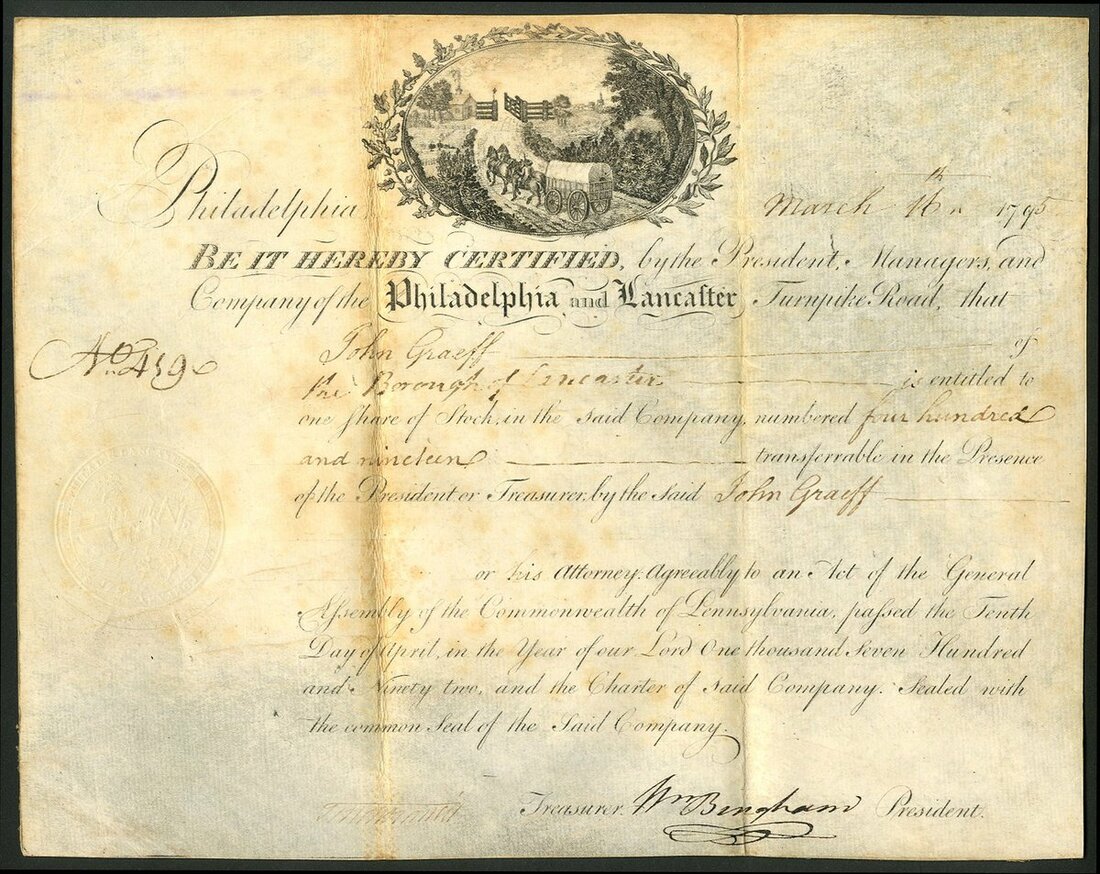 Philadelphia March 16th 1795
BE IT HEREBY CERTIFIED, by the President, Managers, and
Company of the Philadelphia and Lancaster Turnpike Road, that
John Graeff of
No. 419
the Borough of Lancaster is entitled to
one Share of Stock, in the said Company, numbered four hundred
and nineteen transferrable in the Presence
of the President or Treasurer, by the said John Graeff
or his Attorney. Agreeably to an Act of the General
Assembly of the Commonwealth of Pennsylvania, passed the Tenth
Day of April, in the Year of our Lord One thousand Seven Hundred
and Ninety two, and the Charter of said Company. Sealed with
the common Seal of the Said Company.
Treasurer. Wm Bingham President.